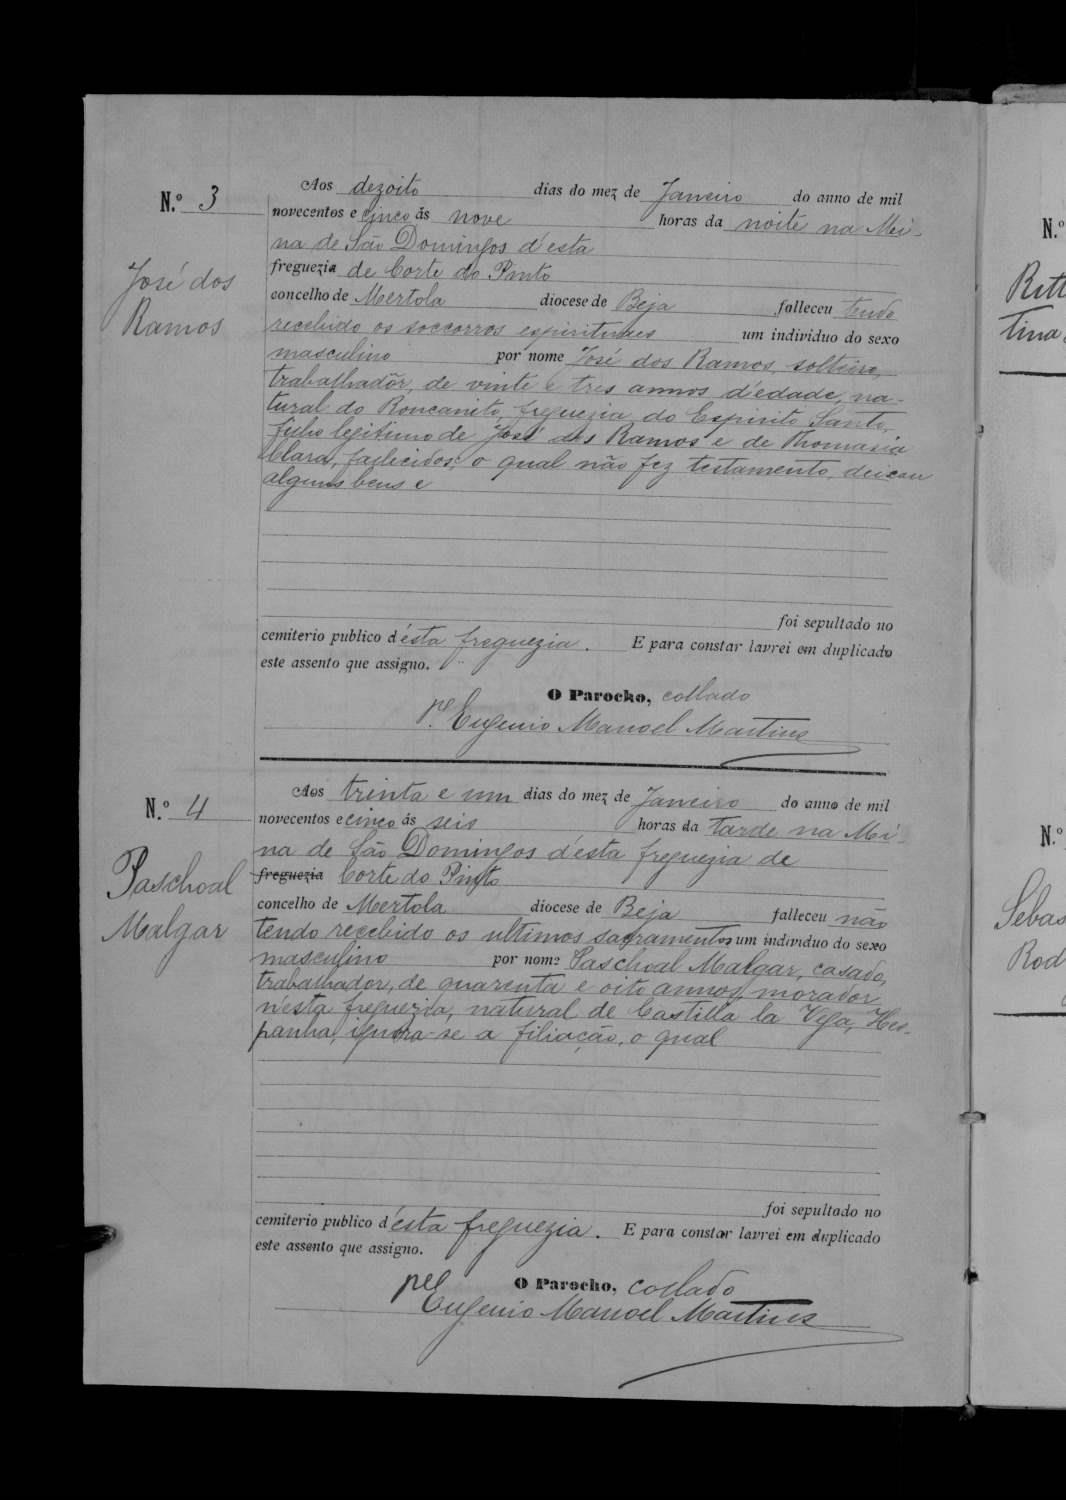 N.º 3
José dos
Ramos
Aos dezoito dias do mez de Janeiro do anno de mil
novecentos e cinco ás nove horas da noite na Mi-
na de São Domingos d'esta
freguezia de Corte do Pinto
concelho de Mertola diocese de Beja falleceu tendo
recebido os soccorros espirituaes um individuo do sexo
masculino por nome José dos Ramos, solteiro,
trabalhador, de vinte e tres annos d'edade, na-
tural do Roncanito, freguezia do Espirito Santo,
filho legitimo de José dos Ramos e de Thomasia
Clara, fallecidos; o qual não fez testamento, deixou
alguns bens e
foi sepultado no
cemiterio publico d'ésta freguezia. E para constar lavrei em duplicado
este assento que assigno.
O Parocho, collado
Pe Eugenio Manoel Martins
N.º 4
Paschoal
Malgar
Aos trinta e um dias do mez de Janeiro do anno de mil
novecentos e cinco ás seis horas da tarde na Mi-
na de São Domingos d'ésta freguezia de
freguezia Corte do Pinto
concelho de Mertola diocese de Beja falleceu não
tendo recebido os ultimos sacramentos um individuo do sexo
masculino por nome Paschoal Malgar, casado,
trabalhador, de quarenta e oito annos, morador
n'esta freguezia, natural de Castilla la Vega, Hes-
panha, ignora-se a filiação, o qual
foi sepultado no
cemiterio publico d'ésta freguezia. E para constar lavrei em duplicado
este assento que assigno.
O Parocho, collado
Pe Eugenio Manoel Martins
N.º
Ritt
tina
N.º
Sebas
Rod